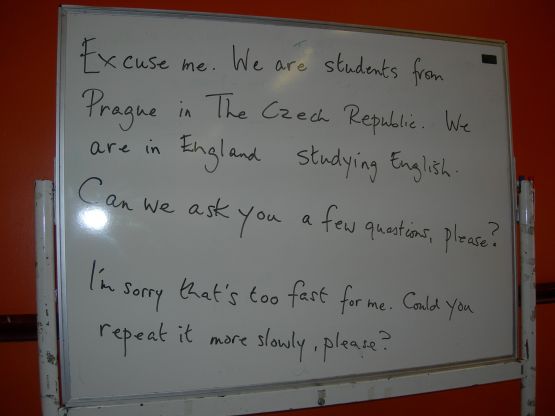 Excuse me. We are students from
Prague in The Czech Republic. We
are in England studying English.
Can we ask you a few questions, please?
I'm sorry that's too fast for me. Could you
repeat it more slowly, please?